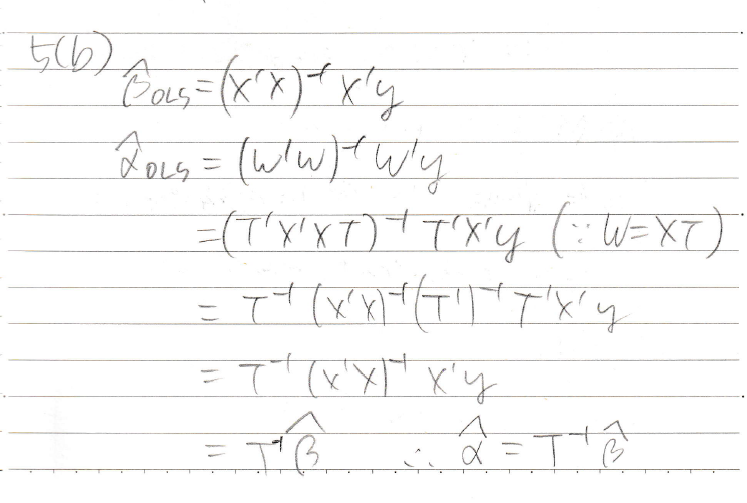 5(b)
β̂OLS = (X'X)⁻¹ X'y
α̂OLS = (W'W)⁻¹ W'y
= (T'X'XT)⁻¹ T'X'y (∵ W = XT)
= T⁻¹ (X'X)⁻¹ (T')⁻¹ T'X'y
= T⁻¹ (X'X)⁻¹ X'y
= T⁻¹ β̂ ∴ α̂ = T⁻¹ β̂